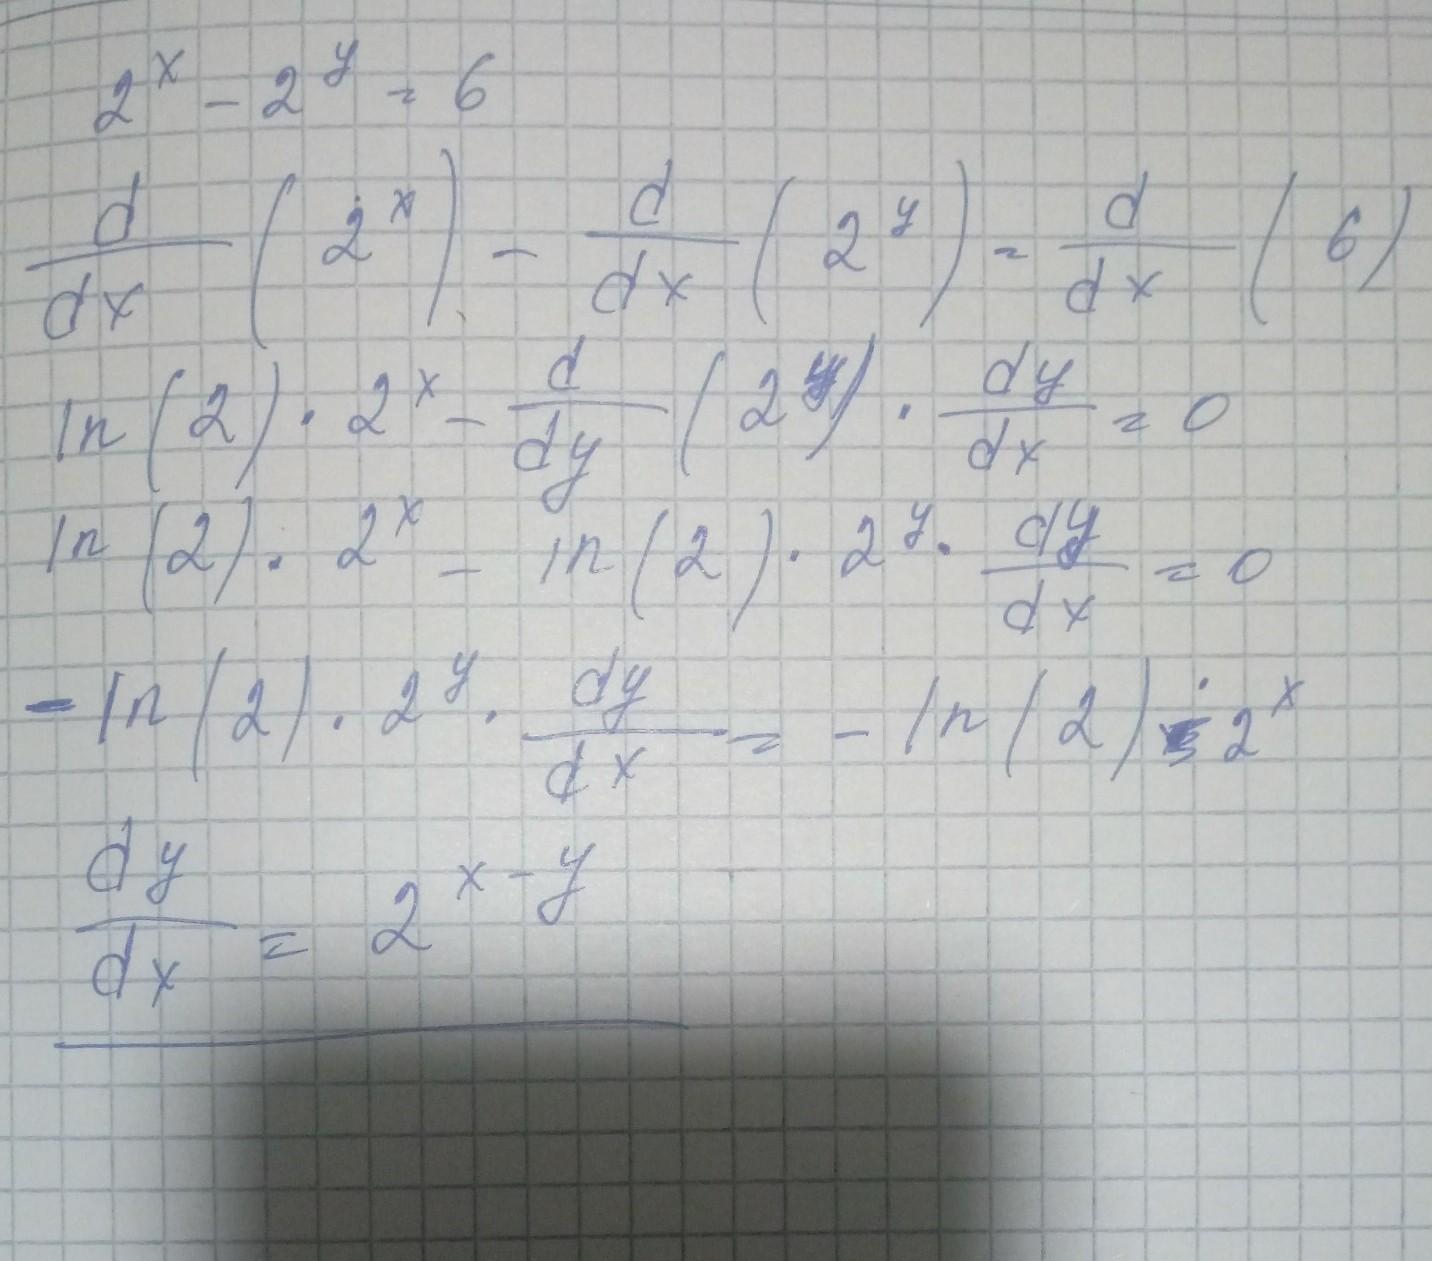 2^x - 2^y = 6
d/dx (2^x) - d/dx (2^y) = d/dx (6)
ln(2) · 2^x - d/dy (2^y) · dy/dx = 0
ln(2) · 2^x - ln(2) · 2^y · dy/dx = 0
- ln(2) · 2^y · dy/dx = - ln(2) · 2^x
dy/dx = 2^{x-y}